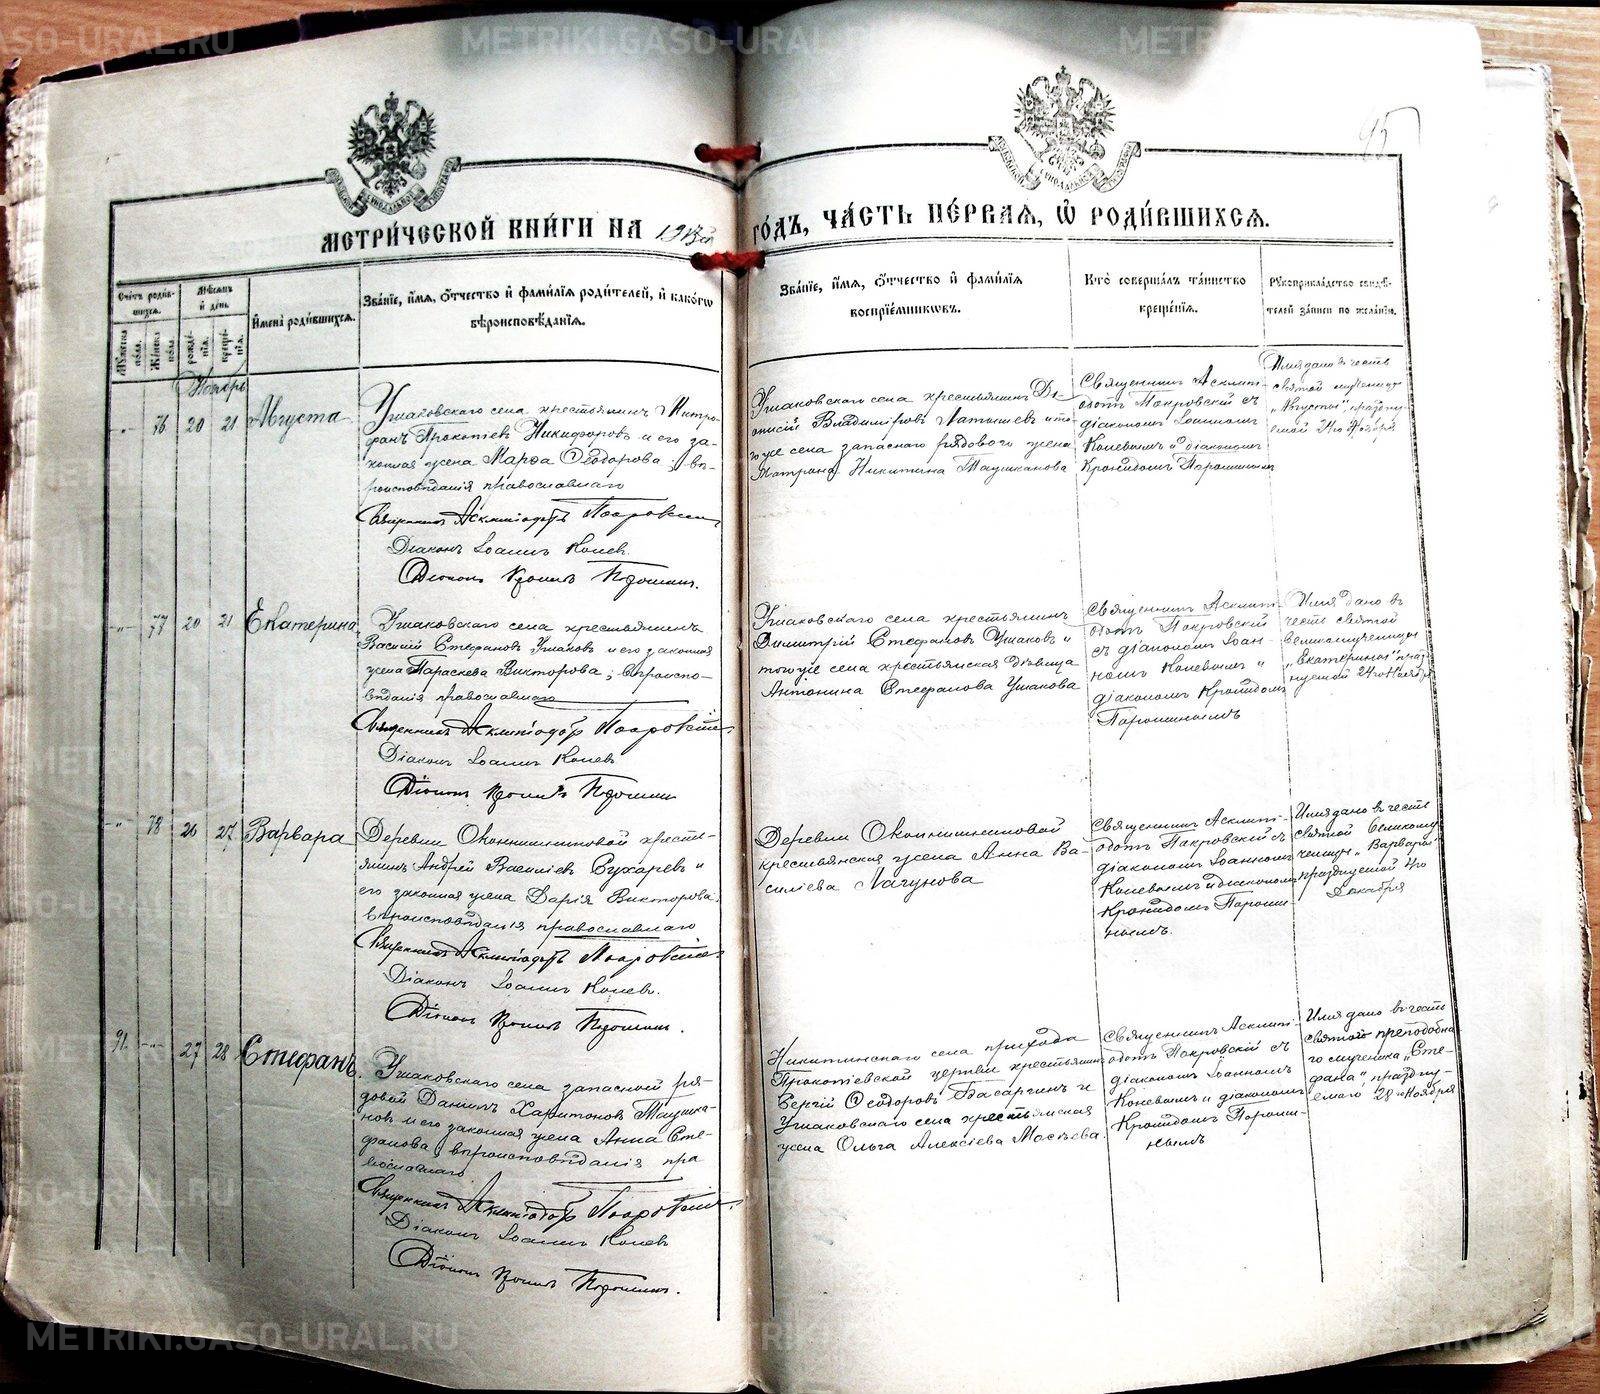 METRIKI.GASO-URAL.RU
95
МЕТРИ́ЧЕСКОЙ КНИ́ГИ НА 1913й ГО́ДЪ, ЧА́СТЬ ПЕ́РВАЯ, Ѿ РОДИ́ВШИХСЯ.
Счетъ родившихся.
Мужеска пола.
Женска пола.
Мѣсяцъ и день
рожденія.
крещенія.
Имена родившихся.
Званіе, имя, отчество и фамилія родителей, и какогѡ вѣроисповѣданія.
Званіе, имя, отчество и фамилія воспріемникѡвъ.
Кто совершалъ таинство крещенія.
Рукоприкладство свидѣтелей записи по желанію.
Ноябрь
-"- 76 20 21 Августа
Ушаковскаго села крестьянинъ Митро-
фанъ Прокопіевъ Никифоровъ и его за-
конная жена Марѳа Ѳеодорова; вѣ-
роисповѣданія православнаго
Священникъ Асклипіодотъ Покровскій
Діаконъ Іоаннъ Коневъ.
Діаконъ Кронидъ Порошинъ.
Ушаковскаго села крестьянинъ Ді-
онисій Владиміровъ Латышевъ и то-
го же села запаснаго рядового жена
Матрона Никитина Таушканова
Священникъ Асклипі-
одотъ Покровскій съ
діакономъ Іоанномъ
Коневымъ и діакономъ
Кронидомъ Порошинымъ
Имя дано въ честь
святой мученицы
"Августы", праздну-
емой 24го Ноября
-"- 77 20 21 Екатерина
Ушаковскаго села крестьянинъ
Василій Стефановъ Ушаковъ и его законная
жена Параскева Викторова; вѣроиспо-
вѣданія православнаго
Священникъ Асклипіодотъ Покровскій
Діаконъ Іоаннъ Коневъ
Діаконъ Кронидъ Порошинъ
Ушаковскаго села крестьянинъ
Димитрій Стефановъ Ушаковъ и
того же села крестьянская дѣвица
Антонина Стефанова Ушакова
Священникъ Асклипі-
одотъ Покровскій
съ діакономъ Іоан-
номъ Коневымъ и
діакономъ Кронидомъ
Порошинымъ
Имя дано въ
честь святой
великомученицы
"Екатерины", празд-
нуемой 24го Ноября
-"- 78 26 27 Варвара
Деревни
крестьянинъ Андрей Васильевъ Сухаревъ и
его законная жена Дарія Викторова;
вѣроисповѣданія православнаго
Священникъ Асклипіодотъ Покровскій
Діаконъ Іоаннъ Коневъ.
Діаконъ Кронидъ Порошинъ.
Деревни
крестьянская жена Анна Ва-
силіева Лагунова
Священникъ Асклипі-
одотъ Покровскій съ
діакономъ Іоанномъ
Коневымъ и діакономъ
Кронидомъ Пороши-
нымъ.
Имя дано въ честь
святой великому-
ченицы "Варвары",
празднуемой 4го
Декабря
91 -"- 27 28 Стефанъ.
Ушаковскаго села запасной ря-
довой Даніилъ Харитоновъ Таушка-
новъ и его законная жена Анна Сте-
фанова; вѣроисповѣданія пра
вославнаго
Священникъ Асклипіодотъ Покровскій
Діаконъ Іоаннъ Коневъ
Діаконъ Кронидъ Порошинъ.
Никитинскаго села прихода
Прокопіевской церкви крестьянинъ
Сергій Ѳеодоровъ Басаргинъ и
Ушаковскаго села крестьянская
жена Ольга Алексіева Мосѣева.
Священникъ Асклипі-
одотъ Покровскій съ
діакономъ Іоанномъ
Коневымъ и діакономъ
Кронидомъ Пороши-
нымъ
Имя дано въ честь
святого преподобна
го мученика "Сте-
фана", праздну-
емаго 28го Ноября